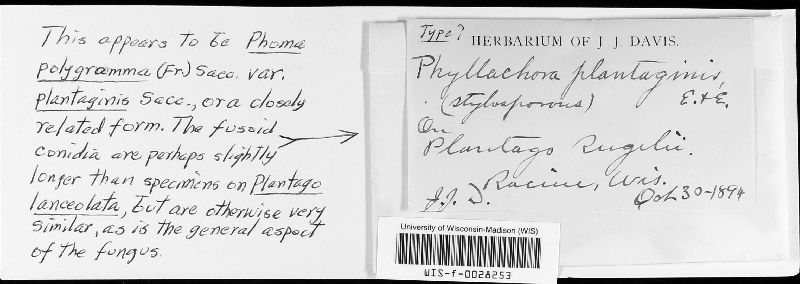 This appears to be Phoma
polygramma (Fr.) Sacc. var.
plantaginis Sacc., or a closely
related form. The fusoid
conidia are perhaps slightly
longer than specimens on Plantago
lanceolata, but are otherwise very
similar, as is the general aspect
of the fungus.
Type?
HERBARIUM OF J. J. DAVIS.
Phyllachora plantaginis,
(stylosporous) E. & E.
On
Plantago Rugelii.
Racine, Wis.
J.J. D. Oct. 30-1894
University of Wisconsin-Madison (WIS)
WIS-f-0028253